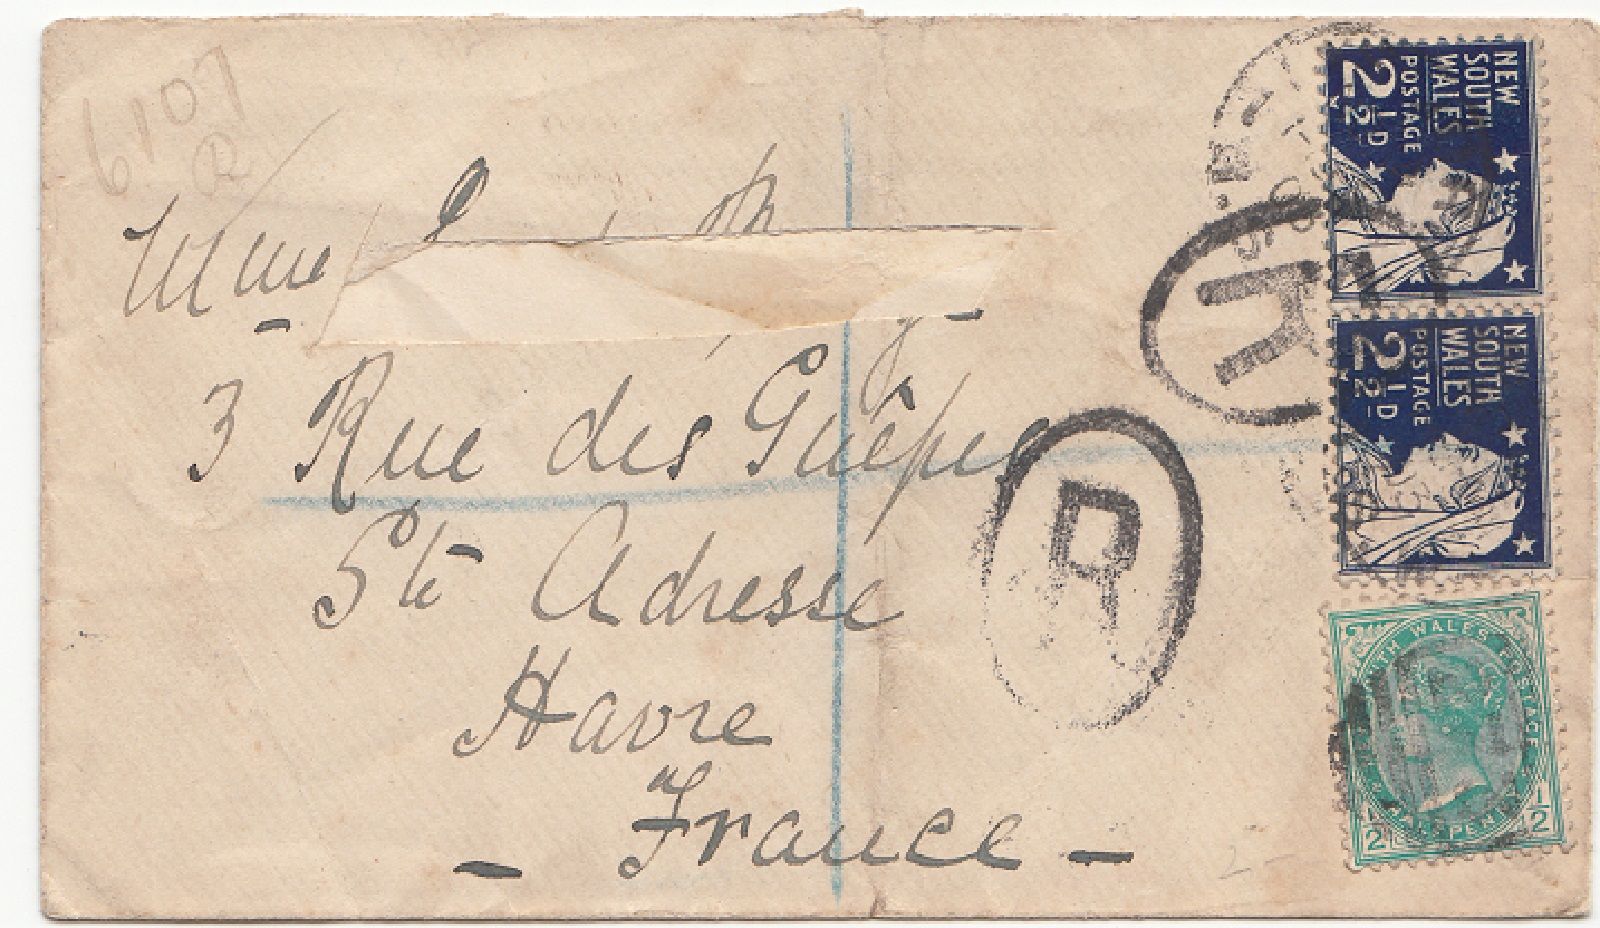 6107
R
Mme
3 Rue des Guêpes
Ste Adresse
Havre
- France -
R
R
NEW
SOUTH
WALES
POSTAGE
2 1/2 D
NEW
SOUTH
WALES
POSTAGE
2 1/2 D
WALES POSTAGE
1/2